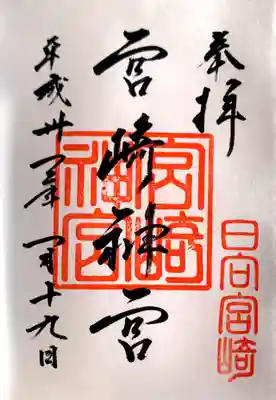 奉拝
日向宮崎
宮﨑神宮
宮崎
神宮
平成 年 月十九日